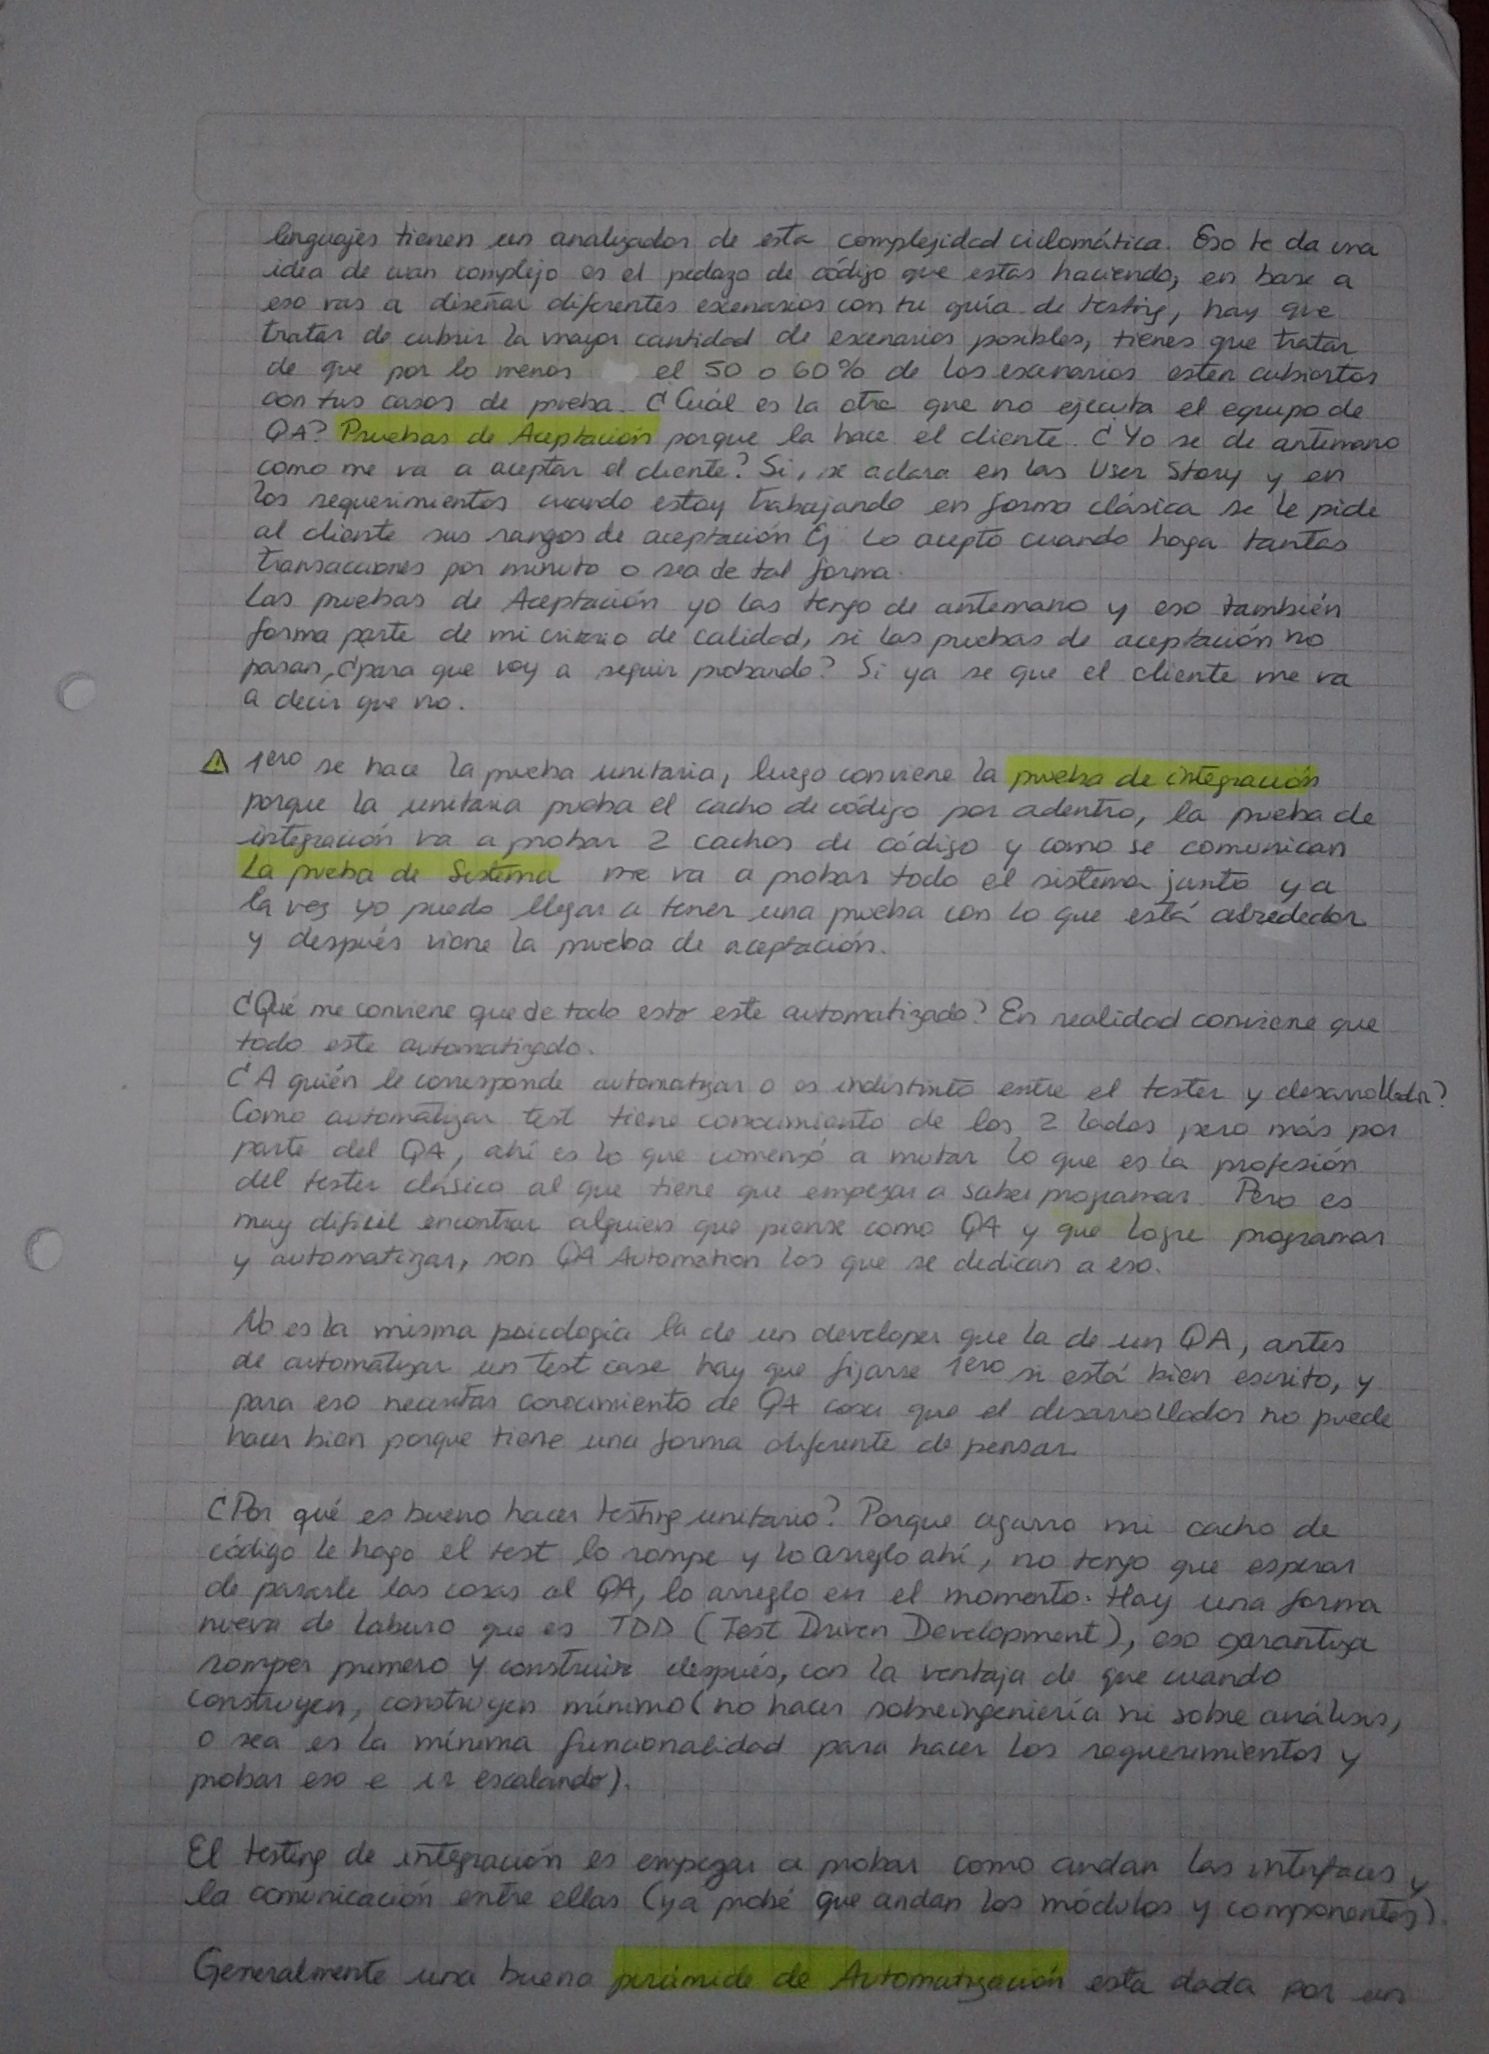 lenguajes tienen un analizador de esta complejidad ciclomática. Eso te da una
idea de cuan complejo es el pedazo de código que estas haciendo, en base a
eso vas a diseñar diferentes escenarios con tu guía de testing, hay que
tratar de cubrir la mayor cantidad de escenarios posibles, tienes que tratar
de que por lo menos el 50 o 60% de los escenarios esten cubiertos
con tus casos de prueba. ¿Cuál es la otra que no ejecuta el equipo de
QA? Pruebas de Aceptación porque la hace el cliente. ¿Yo se de antemano
como me va a aceptar el cliente? Si, se aclara en las User Story y en
los requerimientos cuando estoy trabajando en forma clásica se le pide
al cliente sus rangos de aceptación Ej: Lo acepto cuando haga tantas
transacciones por minuto o sea de tal forma.
Las pruebas de Aceptación yo las tengo de antemano y eso también
forma parte de mi criterio de calidad, si las pruebas de aceptación no
pasan, ¿para que voy a seguir probando? Si ya se que el cliente me va
a decir que no.
⚠ 1ero se hace la prueba unitaria, luego conviene la prueba de integración
porque la unitaria prueba el cacho de código por adentro, la prueba de
integración va a probar 2 cachos de código y como se comunican
La prueba de Sistema me va a probar todo el sistema junto y a
la vez yo puedo llegar a tener una prueba con lo que está alrededor
y después viene la prueba de aceptación.
¿Qué me conviene que de todo esto este automatizado? En realidad conviene que
todo este automatizado.
¿A quién le corresponde automatizar o es indistinto entre el tester y desarrollador?
Como automatizar test tiene conocimiento de los 2 lados pero más por
parte del QA, ahí es lo que comenzó a mutar lo que es la profesión
del tester clásico al que tiene que empezar a saber programar. Pero es
muy difícil encontrar alguien que piense como QA y que logre programar
y automatizar, son QA Automation los que se dedican a eso.
No es la misma psicología la de un developer que la de un QA, antes
de automatizar un test case hay que fijarse 1ero si está bien escrito, y
para eso necesitas conocimiento de QA cosa que el desarrollador no puede
hacer bien porque tiene una forma diferente de pensar
¿Por qué es bueno hacer testing unitario? Porque agarro mi cacho de
código le hago el test lo rompe y lo arreglo ahí, no tengo que esperar
de pasarle las cosas al QA, lo arreglo en el momento. Hay una forma
nueva de laburo que es TDD (Test Driven Development), eso garantiza
romper primero y construir después, con la ventaja de que cuando
construyen, construyen mínimo (no hacer sobreingeniería ni sobre análisis,
o sea es la mínima funcionalidad para hacer los requerimientos y
probar eso e ir escalando).
El testing de integración es empezar a probar como andan las interfaces y
la comunicación entre ellas (ya probé que andan los módulos y componentes).
Generalmente una buena pirámide de Automatización esta dada por un